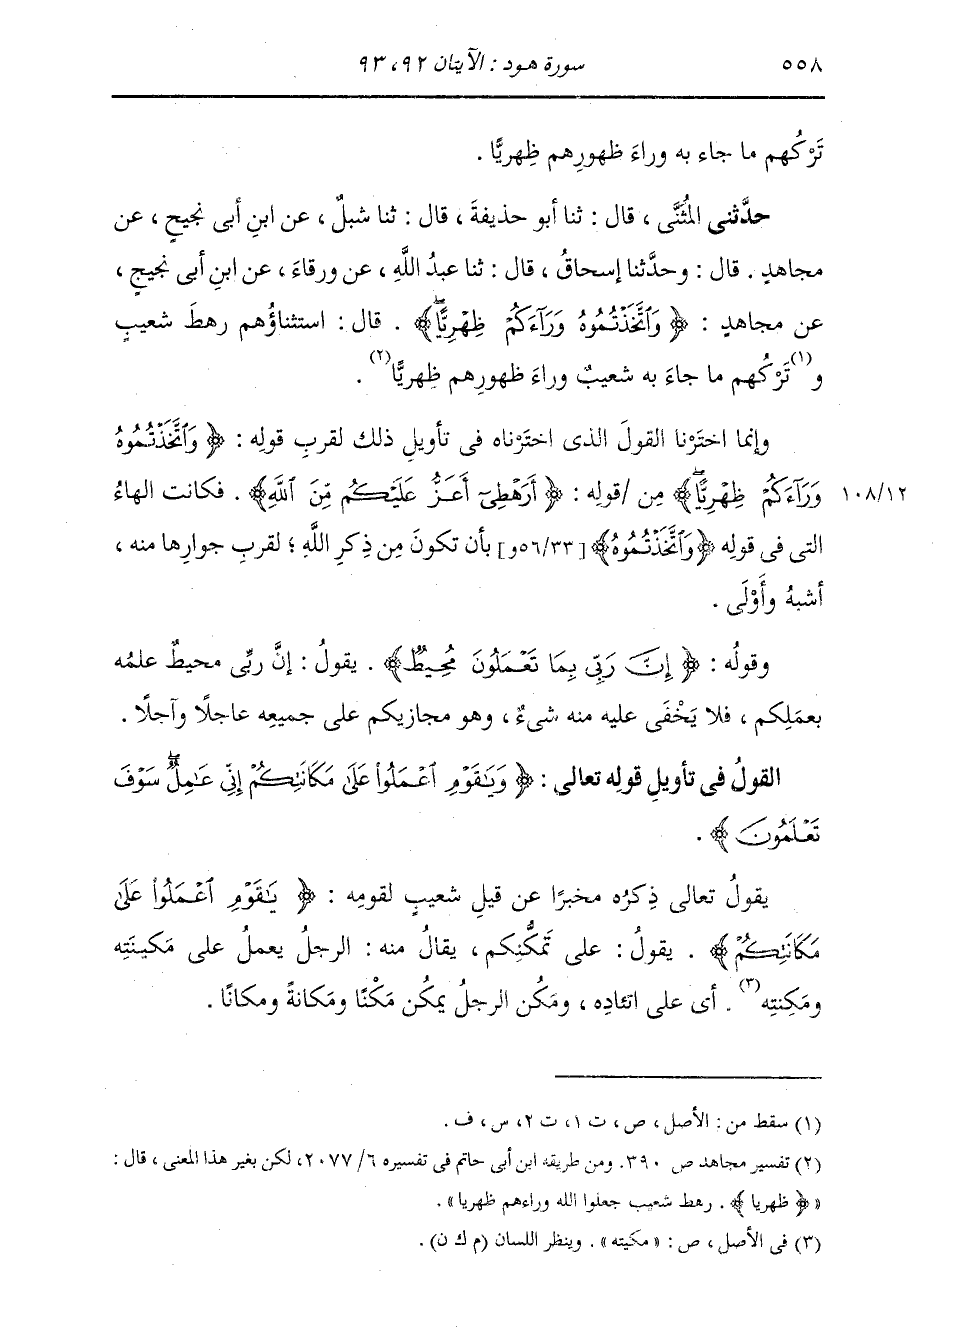 ٥٥٨ سورة هود : الآيتان ٩٢ ، ٩٣
تَرْكُهم ما جاء به وراءَ ظهورِهم ظِهريًّا .
حدَّثنى المُثَنَّى ، قال : ثنا أبو حذيفةَ ، قال : ثنا شبلٌ ، عن ابنِ أبى نجيحٍ ، عن
مجاهدٍ . قال : وحدَّثنا إسحاقُ ، قال : ثنا عبدُ اللَّهِ ، عن ورقاءَ ، عن ابنِ أبى نجيحٍ ،
عن مجاهدٍ : ﴿ وَٱتَّخَذْتُمُوهُ وَرَآءَكُمْ ظِهْرِيًّاۖ ﴾ . قال : استثناؤُهم رهطَ شعيبٍ
و(١)تَرْكُهم ما جاءَ به شعيبٌ وراءَ ظهورِهم ظِهريًّا(٢) .
وإنما اختَرْنا القولَ الذى اختَرْناه فى تأويلِ ذلك لقربِ قولِه : ﴿ وَٱتَّخَذْتُمُوهُ
وَرَآءَكُمْ ظِهْرِيًّاۖ ﴾ مِن /قولِه : ﴿ أَرَهْطِىٓ أَعَزُّ عَلَيْكُم مِّنَ ٱللَّهِ ﴾ . فكانت الهاءُ ١٠٨/١٢
التى فى قولِه ﴿ وَٱتَّخَذْتُمُوهُ ﴾ [٥٦/٣٣و] بأن تكونَ مِن ذِكرِ اللَّهِ ؛ لقربِ جوارِها منه ،
أشبهُ وأَوْلَى .
وقولُه : ﴿ إِنَّ رَبِّى بِمَا تَعْمَلُونَ مُحِيطٌ ﴾ . يقولُ : إنَّ ربِّى محيطٌ علمُه
بعمَلِكم ، فلا يَخْفَى عليه منه شىءٌ ، وهو مجازيكم على جميعِه عاجلًا وآجلًا .
القولُ فى تأويلِ قولِه تعالى : ﴿ وَيَٰقَوْمِ ٱعْمَلُوا۟ عَلَىٰ مَكَانَتِكُمْ إِنِّى عَٰمِلٌۖ سَوْفَ
تَعْلَمُونَ ﴾ .
يقولُ تعالى ذِكرُه مخبرًا عن قيلِ شعيبٍ لقومِه : ﴿ يَٰقَوْمِ ٱعْمَلُوا۟ عَلَىٰ
مَكَانَتِكُمْ ﴾ . يقولُ : على تَمَكُّنِكم ، يقالُ منه : الرجلُ يعملُ على مَكينَتِه
ومَكِنتِه(٣) . أى على اتئادِه ، ومَكُن الرجلُ يمكُن مَكْنًا ومَكانةً ومكانًا .
(١) سقط من : الأصل ، ص ، ت ١ ، ت ٢ ، س ، ف .
(٢) تفسير مجاهد ص ٣٩٠. ومن طريقه ابن أبى حاتم فى تفسيره ٦/ ٢٠٧٧، لكن بغير هذا المعنى ، قال :
« ﴿ ظهريا ﴾ . رهط شعيب جعلوا الله وراءهم ظهريا » .
(٣) فى الأصل ، ص : « مكيته » . وينظر اللسان (م ك ن) .